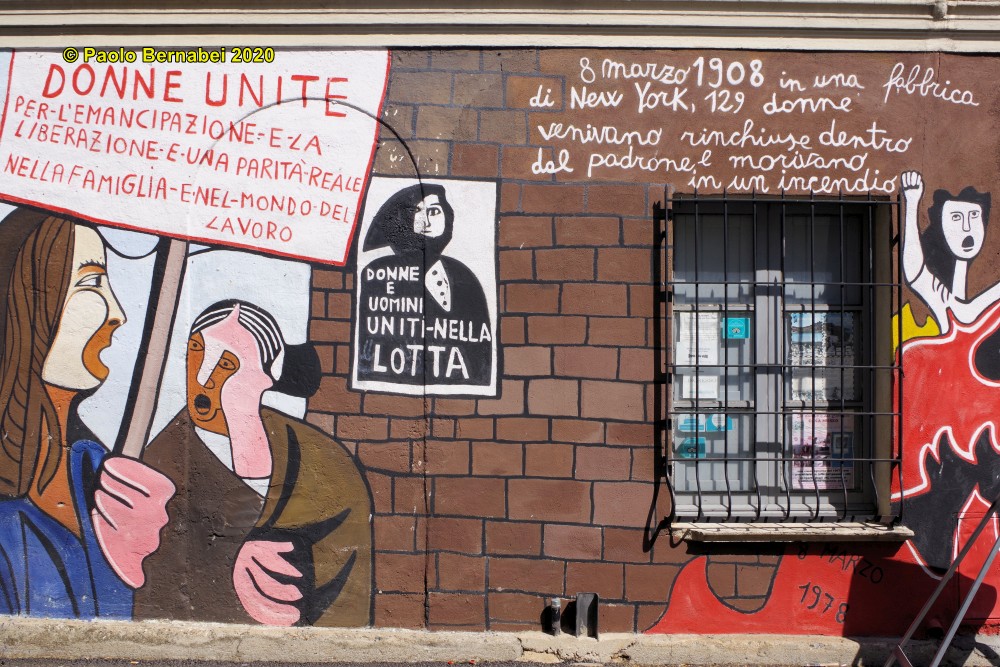 © Paolo Bernabei 2020
DONNE UNITE
PER-L'EMANCIPAZIONE-E-LA
LIBERAZIONE-E-UNA PARITÀ-REALE
NELLA FAMIGLIA-E-NEL-MONDO-DEL
LAVORO
DONNE
E
UOMINI
UNITI-NELLA
LOTTA
8 marzo 1908 in una fabbrica
di New York, 129 donne
venivano rinchiuse dentro
dal padrone e morivano
in un incendio
8 MARZO
1978